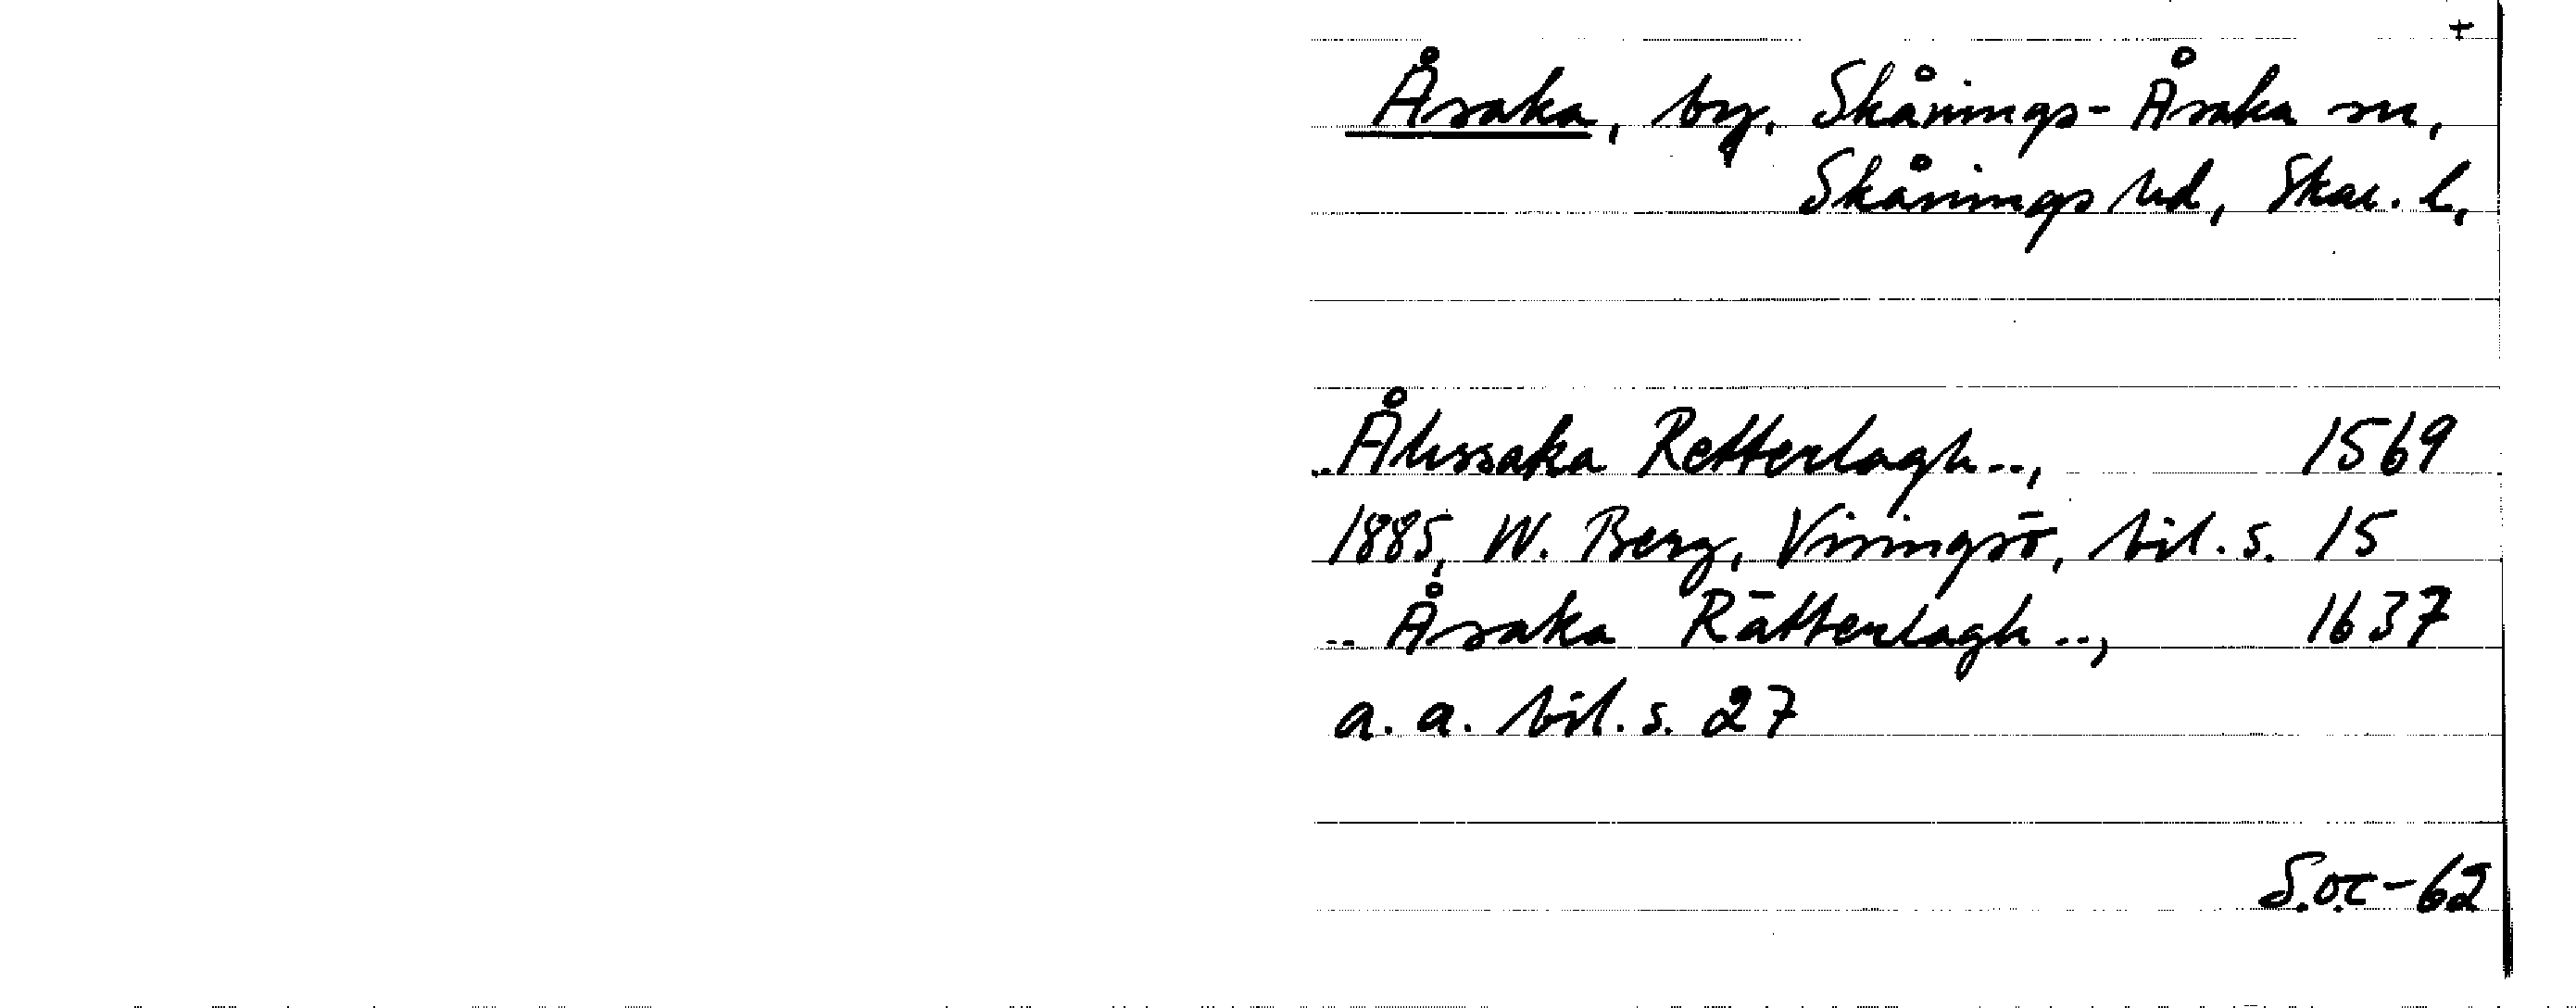 +
Åsaka, by, Skånings-Åsaka sn,
Skånings hd, Skar. l.
..Åhssaka Retterlagh..,    1569
1885, W. Berg, Visingsö, bil. s. 15
.. Åsaka Rätterlagh..,    1637
a. a. bil. s. 27
S.o.c-62